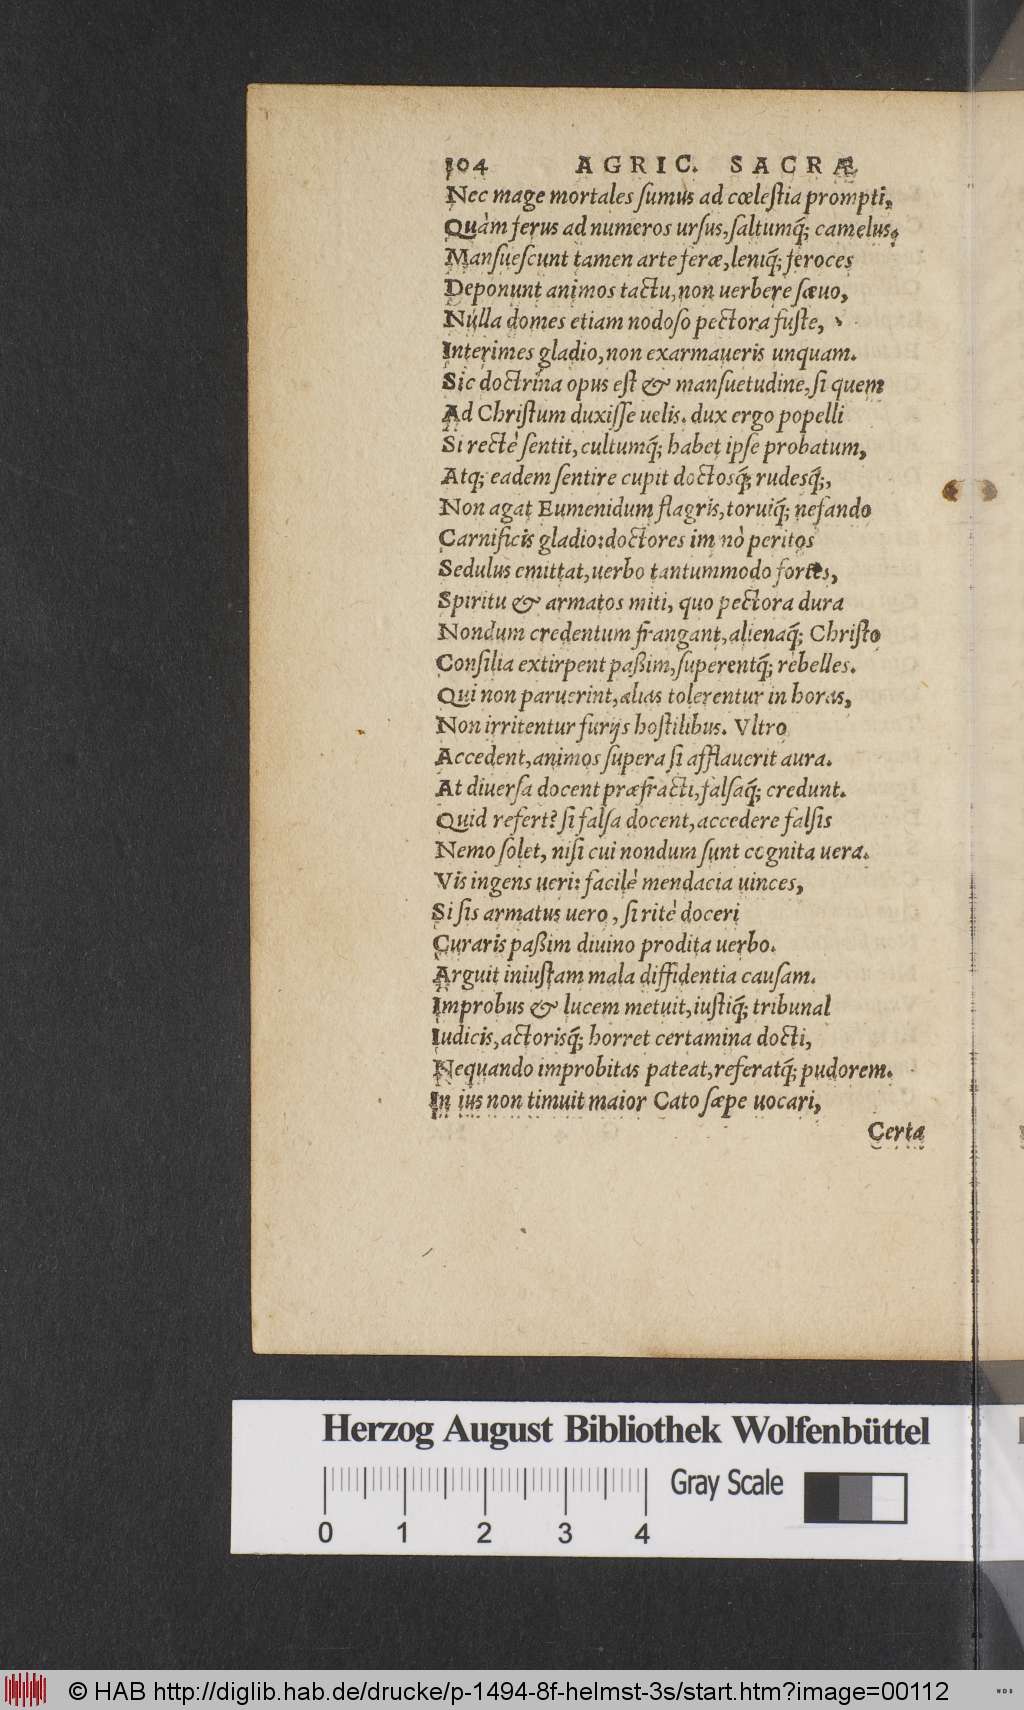 104 AGRIC. SACRÆ
Nec mage mortales ſumus ad cœleſtia prompti,
Quàm ferus ad numeros urſus, ſaltumq́; camelus.
Manſueſcunt tamen arte feræ, leniq́; feroces
Deponunt animos tactu, non uerbere ſæuo,
Nulla domes etiam nodoſo pectora fuſte,
Interimes gladio, non exarmaueris unquam.
Sic doctrina opus eſt & manſuetudine, ſi quem
Ad Chriſtum duxiſſe uelis. dux ergo popelli
Si rectè ſentit, cultumq́; habet ipſe probatum,
Atq; eadem ſentire cupit doctosq́; rudesq́;,
Non agat Eumenidum flagris, toruiq́; nefando
Carnificis gladio: doctores imnò peritos
Sedulus emittat, uerbo tantummodo fortes,
Spiritu & armatos miti, quo pectora dura
Nondum credentum frangant, alienaq́; Chriſto
Conſilia extirpent paßim, ſuperentq́; rebelles.
Qui non paruerint, alias tolerentur in horas,
Non irritentur furijs hoſtilibus. Vltro
Accedent, animos ſupera ſi afflauerit aura.
At diuerſa docent præfracti, falſaq́; credunt.
Quid refert? ſi falſa docent, accedere falſis
Nemo ſolet, niſi cui nondum ſunt cognita uera.
Vis ingens ueri: facilè mendacia uinces,
Si ſis armatus uero, ſi ritè doceri
Curaris paßim diuino prodita uerbo.
Arguit iniuſtam mala diffidentia cauſam.
Improbus & lucem metuit, iuſtiq́; tribunal
Iudicis, actorisq́; horret certamina docti,
Nequando improbitas pateat, referatq́; pudorem.
In ius non timuit maior Cato ſæpe uocari,
Certa
Herzog August Bibliothek Wolfenbüttel
Gray Scale
0 1 2 3 4
© HAB http://diglib.hab.de/drucke/p-1494-8f-helmst-3s/start.htm?image=00112